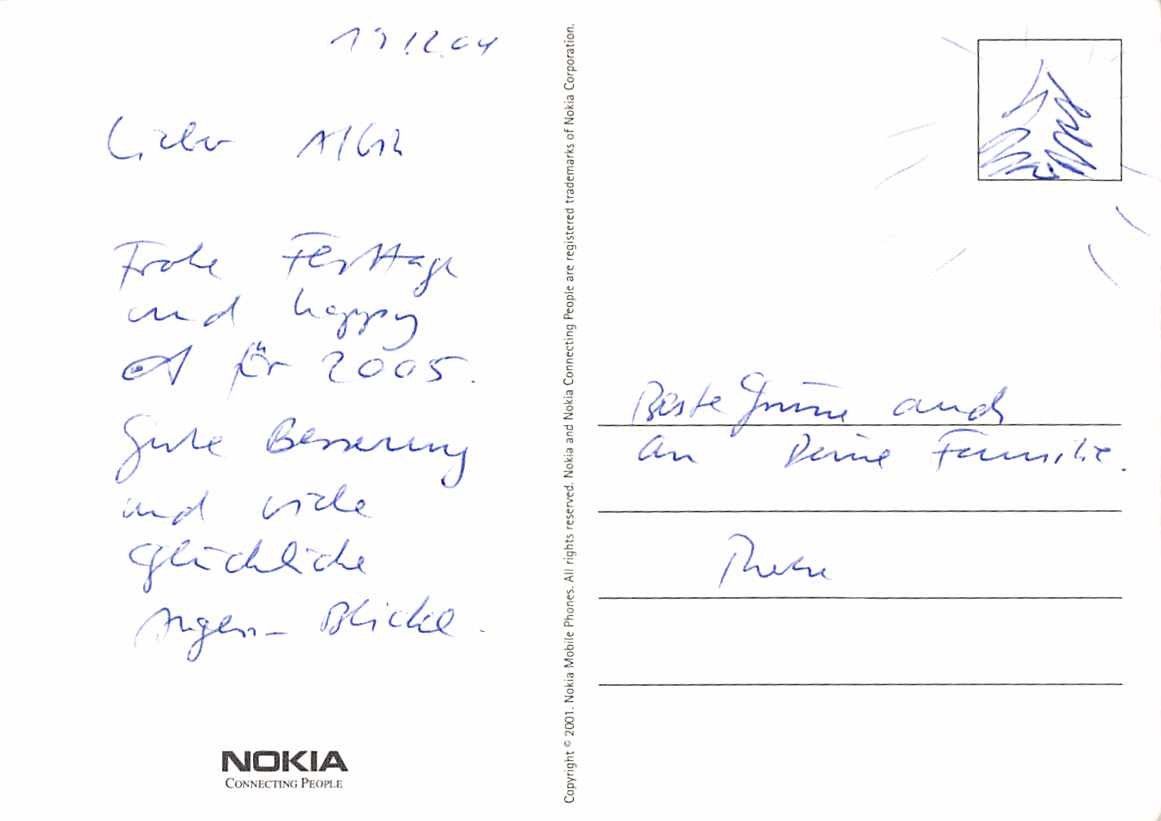 19.12.04
Lieber Albin
Frohe Festtage
und happy
für 2005.
Gute Besserung
und viele
glückliche
Augen-Blicke.
NOKIA
CONNECTING PEOPLE
Copyright © 2001. Nokia Mobile Phones. All rights reserved. Nokia and Nokia Connecting People are registered trademarks of Nokia Corporation.
Beste Grüsse auch
an Deine Familie.